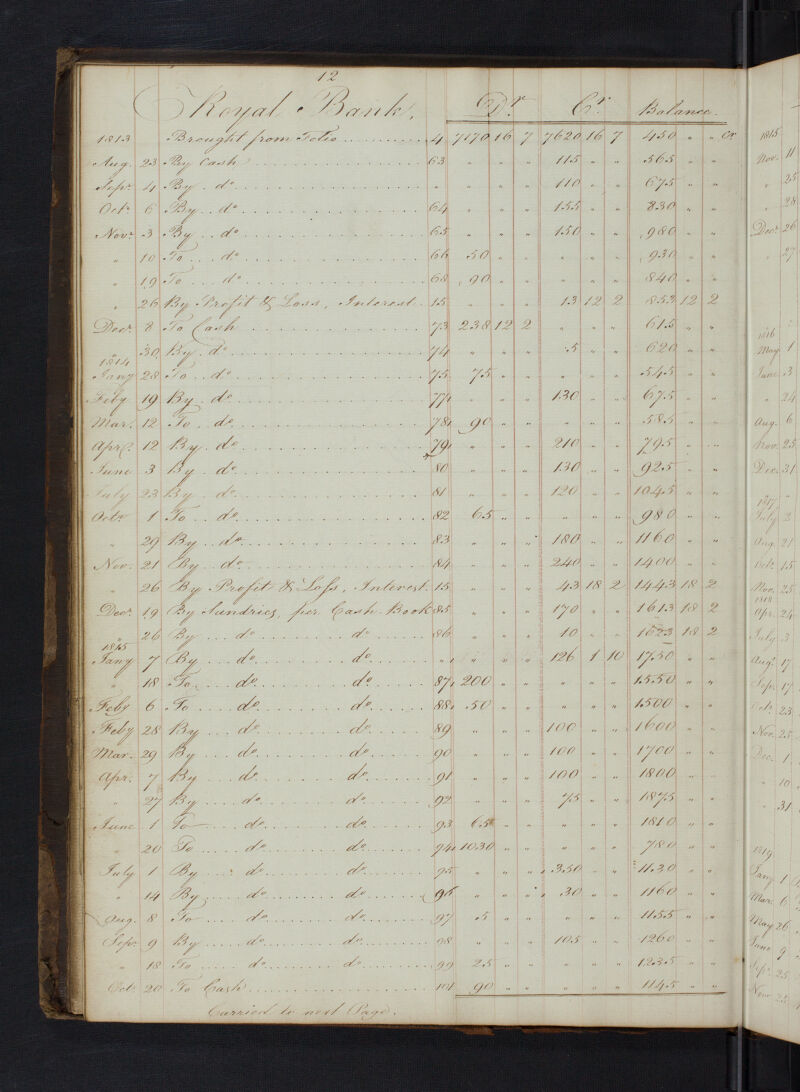 12
Royal Bank, Dr. Cr. Balance.
1813 Brought from Folio 4 7170 16 7 7620 16 7 450 " " Cr
Aug. 23 By Cash 63 " " " 115 " " 565 " "
Sepr. 4 By do " " " " 110 " " 675 " "
Octr 6 By do 64 " " " 155 " " 830 " "
Novr. 3 By do 65 " " " 150 " " 980 " "
" 10 To do 66 50 " " " " " 930 " "
" 19 To do 68 90 " " " " " 840 " "
" 26 By Profit & Loss, Interest 15 " " " 13 12 2 853 12 2
Decr. 8 To Cash 73 238 12 2 " " " 615 " "
" 30 By do 74 " " " 5 " " 620 " "
1814
Jany 28 To do 75 75 " " " " " 545 " "
Feby 19 By do 77 " " " 130 " " 675 " "
Mar. 12 To do 78 90 " " " " " 585 " "
Aprl. 12 By do 79 " " " 210 " " 795 " "
June 3 By do 80 " " " 130 " " 925 " "
July 23 By do 81 " " " 120 " " 1045 " "
Octr 1 To do 82 65 " " " " " 980 " "
" 29 By do 83 " " " 180 " " 1160 " "
Nov. 21 By do 84 " " " 240 " " 1400 " "
" 26 By Profit & Loss, Interest 15 " " " 43 18 2 1443 18 2
Decr. 19 By Sundries, per Cash-Book 85 " " " 170 " " 1613 18 2
" 26 By do do 86 " " " 10 " " 1623 18 2
1815
Jany 7 By do do " " " " 126 1 10 1750 " "
" 18 To do do 87 200 " " " " " 1550 " "
Feby 6 To do do 88 50 " " " " " 1500 " "
Feby 28 By do do 89 " " " 100 " " 1600 " "
Mar. 29 By do do 90 " " " 100 " " 1700 " "
Apr. 7 By do do 91 " " " 100 " " 1800 " "
" 27 By do do 92 " " " 75 " " 1875 " "
June 1 To do do 93 65 " " " " " 1810 " "
" 20 To do do 94 1030 " " " " " 780 " "
July 1 By do do 95 " " " 350 " " 1130 " "
" 14 By do do 95 " " " 30 " " 1160 " "
Aug. 8 To do do 97 5 " " " " " 1155 " "
Sepr. 9 By do do 98 " " " 105 " " 1260 " "
" 18 To do do 99 25 " " " " " 1235 " "
Octr 20 To Cash 101 90 " " " " " 1145 " "
Carried to next Page.
1815
Nov. 11
" 25
" 28
Decr. 26
" 27
1816
May 1
June 3
" 24
Aug. 6
Nov. 25
Dec. 31
1817
July 2
Aug. 21
Octr. 15
Nov. 25
1818
Apr. 24
July 3
Augt. 17
Sepr. 17
Octr. 23
Nov. 25
Dec. 1
" 10
" 31
1819
Jany 1
Mar. 6
May 26
June 9
Sepr. 25
Nov. 25